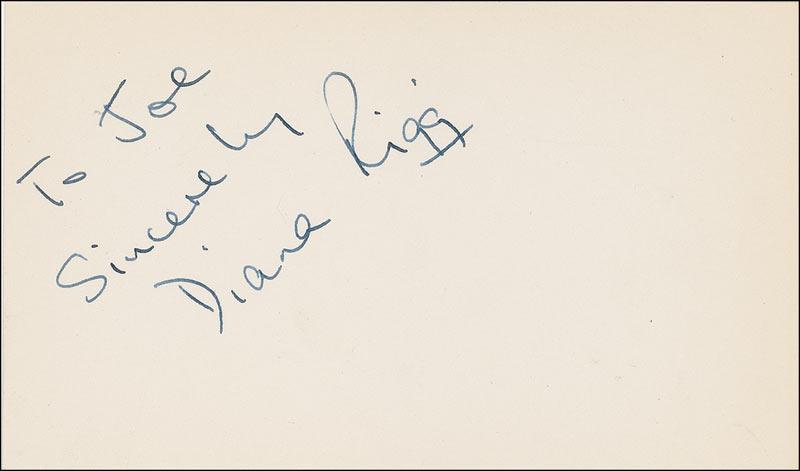 To Joe
Sincerely
Diana Rigg